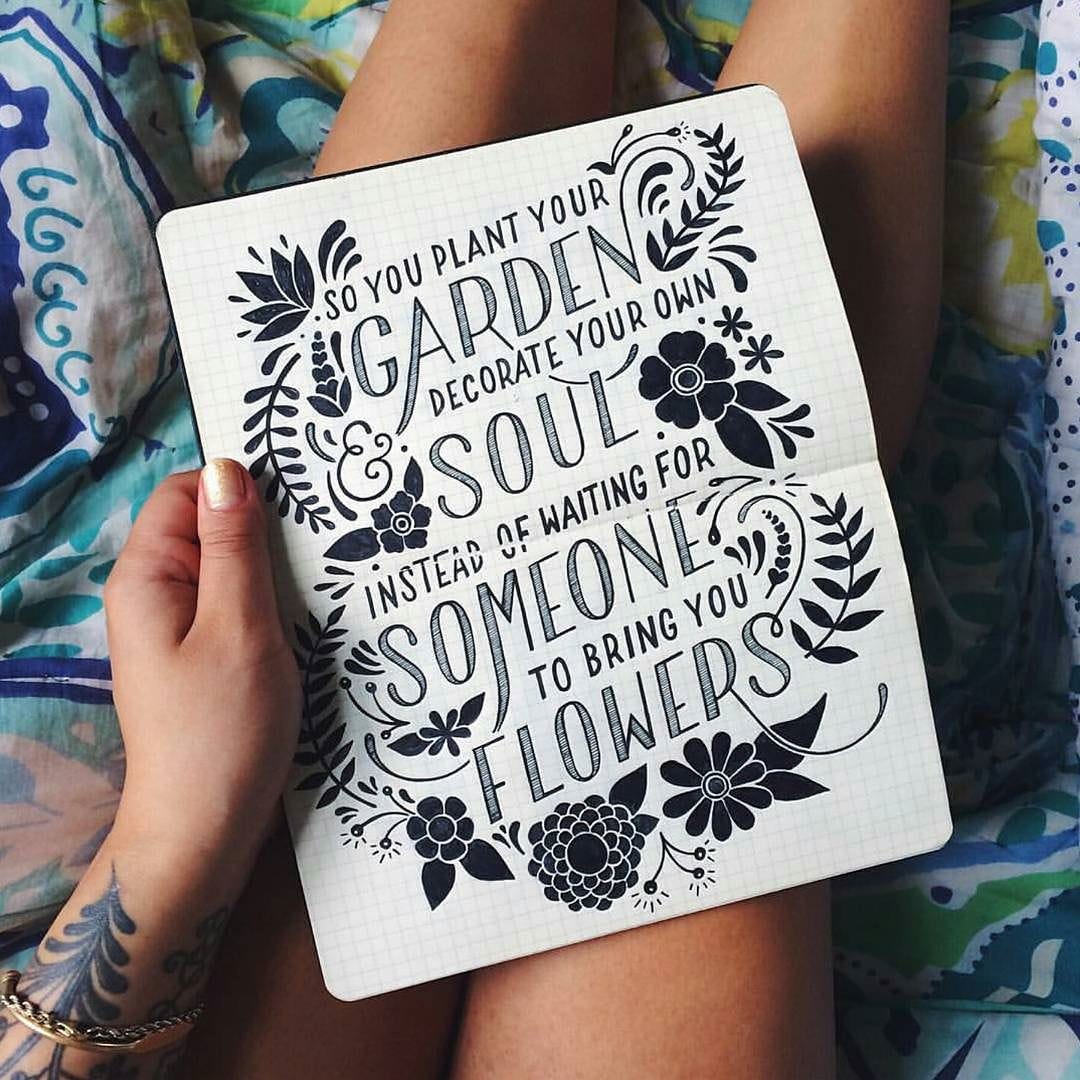 SO YOU PLANT YOUR
GARDEN
& DECORATE YOUR OWN
SOUL
INSTEAD OF WAITING FOR
SOMEONE
TO BRING YOU
FLOWERS